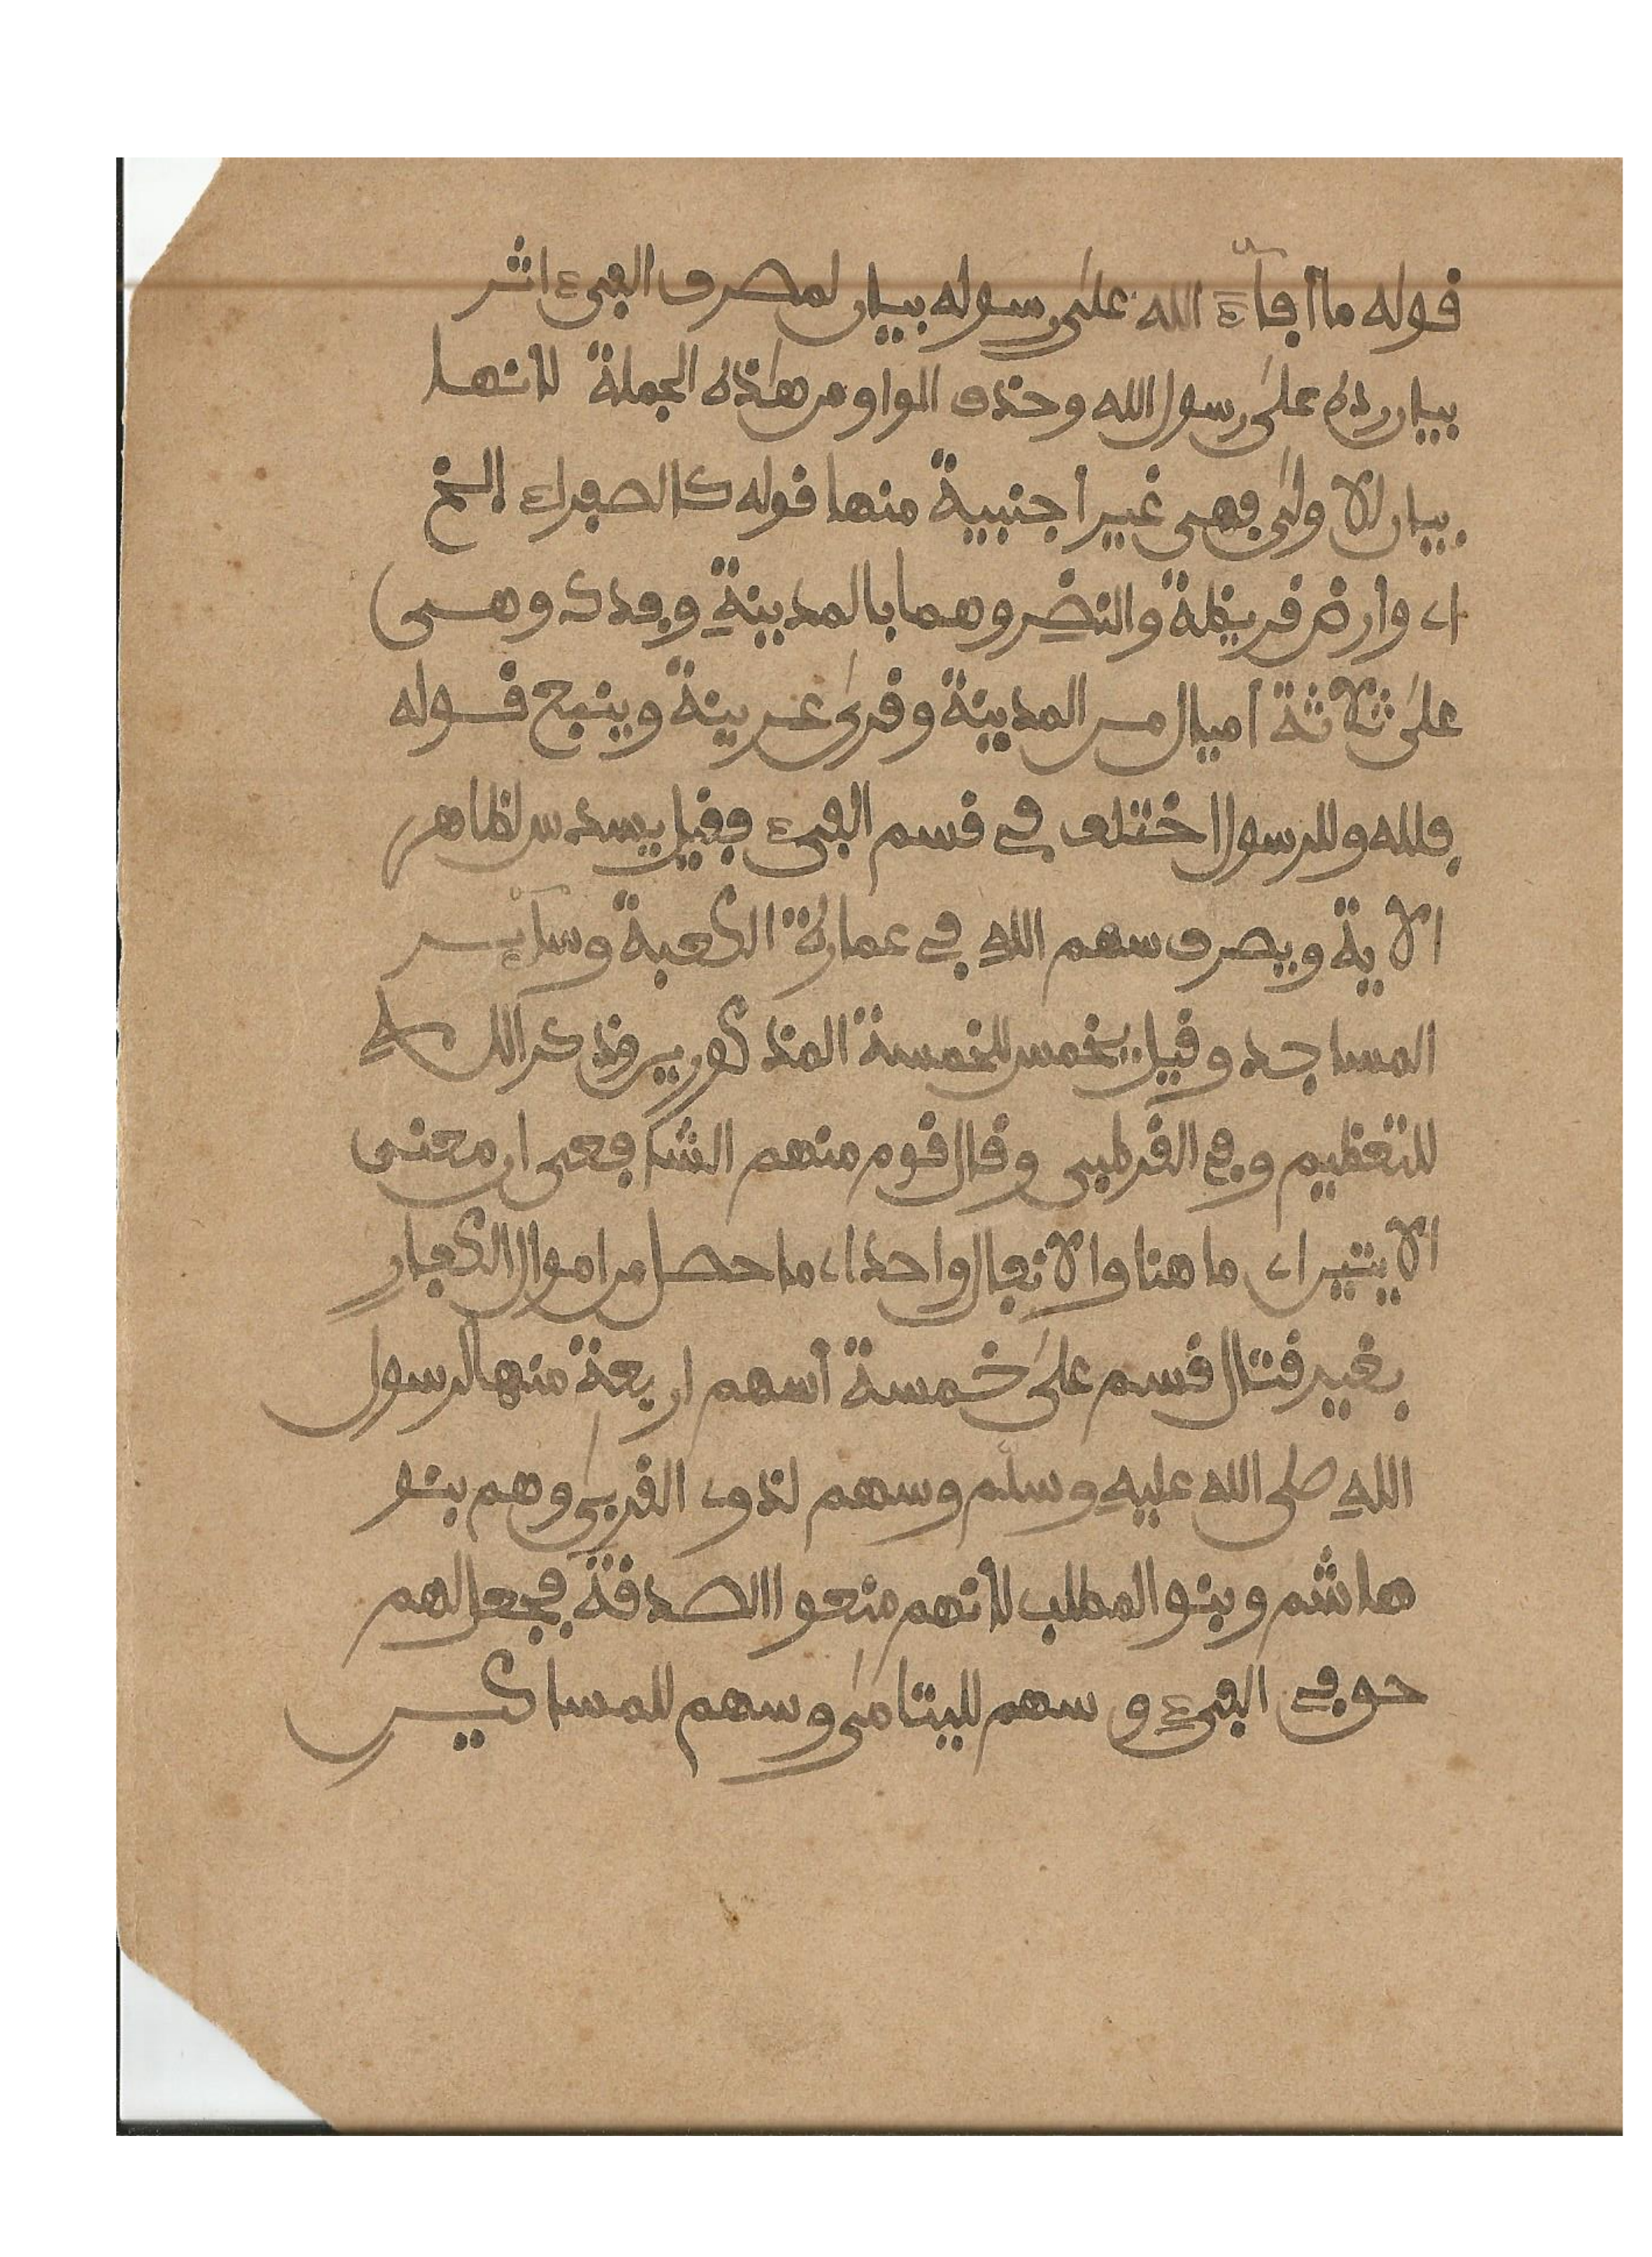 قوله ما أفآء الله على رسوله بيان لمصرف الفيء اثر
بيان رده على رسول الله وحذف الواو من هذه الجملة لأنها
بيان للاولى فهي غير أجنبية منها قوله كالصفراء الخ
اي وارض قريظة والنضر وهما بالمدينة وفدك وهي
على ثلاثة أميال من المدينة وقرى عرينة وينبع قوله
فلله وللرسول اختلف في قسم الفيء فقيل يسدس لظاهر
الاية ويصرف سهم الله في عمارة الكعبة وسآئر
المساجد وقيل يخمس للخمسة المذكورين وذكر الله
للتعظيم وفي القرطبي وقال قوم منهم الشافعي ان معنى
الايتين اي ما هنا والانفال واحد اي ما حصل من اموال الكفار
بغير قتال قسم على خمسة أسهم اربعة منها لرسول
الله صلى الله عليه وسلم وسهم لذوي القربى وهم بنو
هاشم وبنو المطلب لأنهم منعوا الصدقة فجعل لهم
حق في الفيء وسهم لليتامى وسهم للمساكين